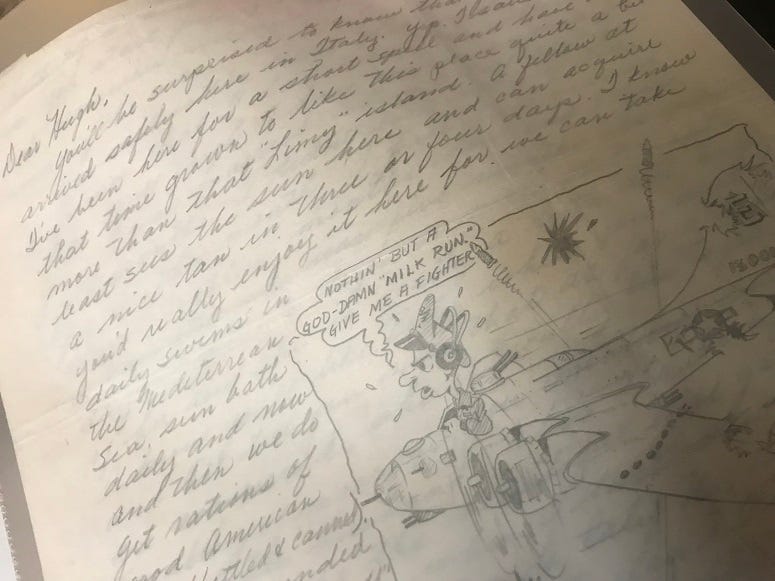 Dear Hugh,
You'll be surprised to know that
arrived safely here in Italy. Yep. I
I've been here for a short spell and have in
that time grown to like this place quite a bit
more than that "Limy" island. A fellow at
least sees the sun here and can acquire
a nice tan in three or four days. I know
you'd really enjoy it here for we can take
daily swims in
the Mediterrean
Sea, sun bath
daily and now
and then we do
get rations of
good American
bottled & canned,
NOTHIN' BUT A
GOD-DAMN "MILK RUN."
GIVE ME A FIGHTER